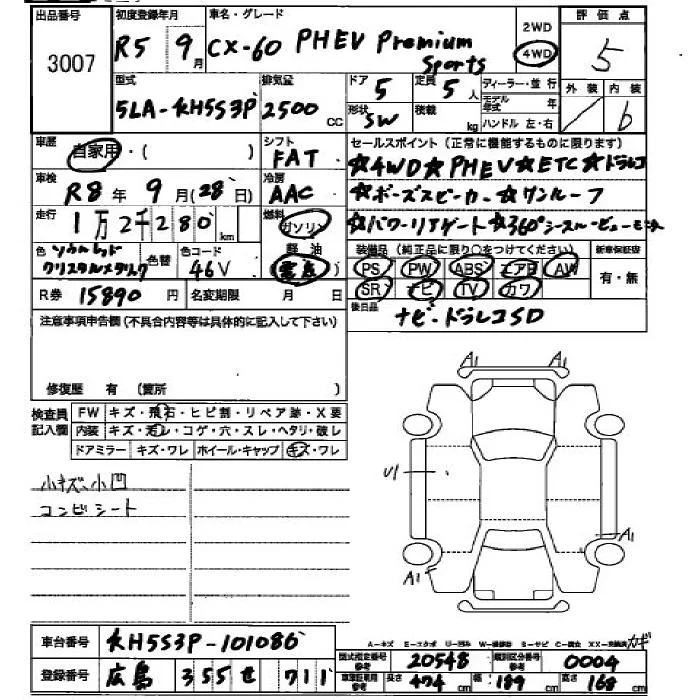 出品番号 3007
初度登録年月 R5年 9月
車名・グレード CX-60 PHEV Premium Sports
2WD 4WD
評価点 5
外装 / 内装 b
型式 5LA-KH5S3P
排気量 2500 CC
ドア 5 定員 5人
形状 SW 積載 kg
ディーラー・並行
モデル年式 年
ハンドル 左・右
車歴 自家用・( )
シフト FAT
セールスポイント(正常に機能するものに限ります)
☆4WD☆PHEV☆ETC☆ドラレコ
☆ボーズスピーカー☆サンルーフ
☆パワーリアゲート☆360°シースルービューモニター
車検 R8年 9月(28日)
冷房 AAC
走行 1万2千280 km
燃料 ガソリン 軽油 電気
色 ソウルレッドクリスタルメタリック
色替
色コード 46V
装備品(純正品に限り○をつけてください)
PS PW ABS エアB AW
SR ナビ TV カワ
新車保証書 有・無
R券 15890円
名変期限 月 日
後日品 ナビ・ドラレコSD
注意事項申告欄(不具合内容等は具体的に記入して下さい)
修復歴 有 (箇所 )
検査員記入欄
FW キズ・飛石・ヒビ割・リペア跡・X要
内装 キズ・汚レ・コゲ・穴・スレ・ヘタリ・破レ
ドアミラー キズ・ワレ ホイール・キャップ キズ・ワレ
小キズ小凹
コンビシート
A1 A1
U1
A1
A1
車台番号 KH5S3P-101086
A-キズ E-エクボ U-凹み W-補修跡 S-サビ C-腐食 XX-交換済 カギ
登録番号 広島 355 せ 711
型式指定番号 参考 20548
類別区分番号 参考 0004
車庫証明用 参考 長さ 474 cm 幅 189 cm 高さ 168 cm